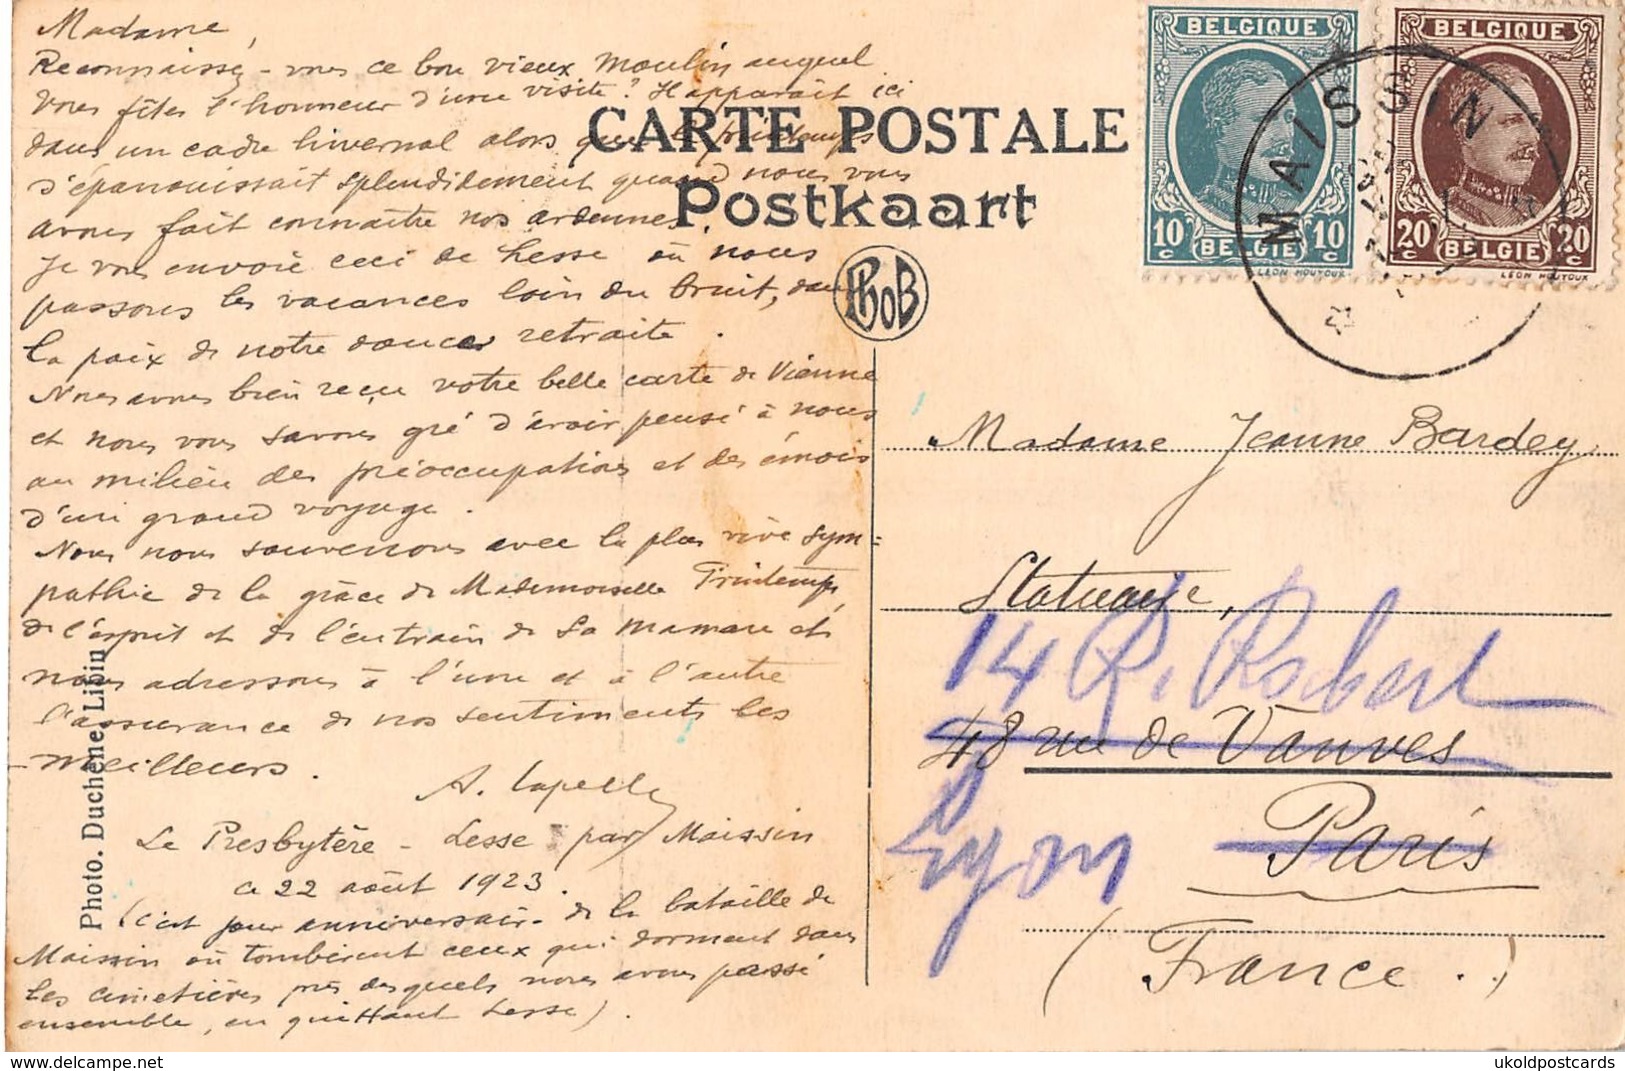 Madame,
Reconnaissez-vous ce bon vieux moulin auquel
vous fîtes l'honneur d'une visite? Il apparaît ici
dans un cadre hivernal alors que le printemps
s'épanouissait splendidement quand nous vous
avons fait connaître nos ardennes.
Je vous envoie ceci de Lesse où nous
passons les vacances loin du bruit, dans
la paix de notre douce retraite.
Nous avons bien reçu votre belle carte de Vienne
et nous vous savons gré d'avoir pensé à nous
au milieu des préoccupations et des émois
d'un grand voyage.
Nous nous souvenons avec la plus vive sym=
pathie de la grâce de Mademoiselle Printemps,
de l'esprit et de l'entrain de sa maman et
nous adressons à l'une et à l'autre
l'assurance de nos sentiments les
meilleurs.
A. Lapelle
Le Presbytère - Lesse par Maissin
ce 22 août 1923.
(c'est jour anniversaire de la bataille de
Maissin où tombèrent ceux qui dorment dans
les cimetières près desquels nous avons passé
ensemble, en quittant Lesse).
Photo. Duchêne, Libin
CARTE POSTALE
Postkaart
PhoB
BELGIQUE
10 c BELGIË 10 c
LEON HOUYOUX
BELGIQUE
20 c BELGIË 20 c
LEON HOUYOUX
MAISSIN
Madame Jeanne Bardey
Statuaire,
14 R. Robert
48 rue de Vanves
Lyon
Paris
(France.)
delcampe.net
ukoldpostcards